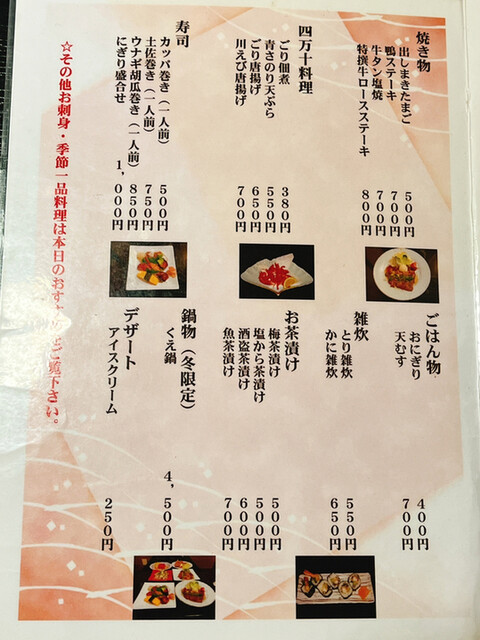 焼き物
出しまきたまご 500円
鴨ステーキ 700円
牛タン塩焼 700円
特撰牛ロースステーキ 800円
四万十料理
ごり佃煮 380円
青さのり天ぷら 550円
ごり唐揚げ 650円
川えび唐揚げ 700円
寿司
カッパ巻き(一人前) 500円
土佐巻き(一人前) 750円
ウナギ胡瓜巻き(一人前) 850円
にぎり盛合せ 1,000円
ごはん物
おにぎり 400円
天むす 700円
雑炊
とり雑炊 550円
かに雑炊 650円
お茶漬け
梅茶漬け 500円
塩から茶漬け 500円
酒盗茶漬け 600円
魚茶漬け 700円
鍋物(冬限定)
くえ鍋 4,500円
デザート
アイスクリーム 250円
☆その他お刺身・季節一品料理は本日のおすすめをご覧下さい。